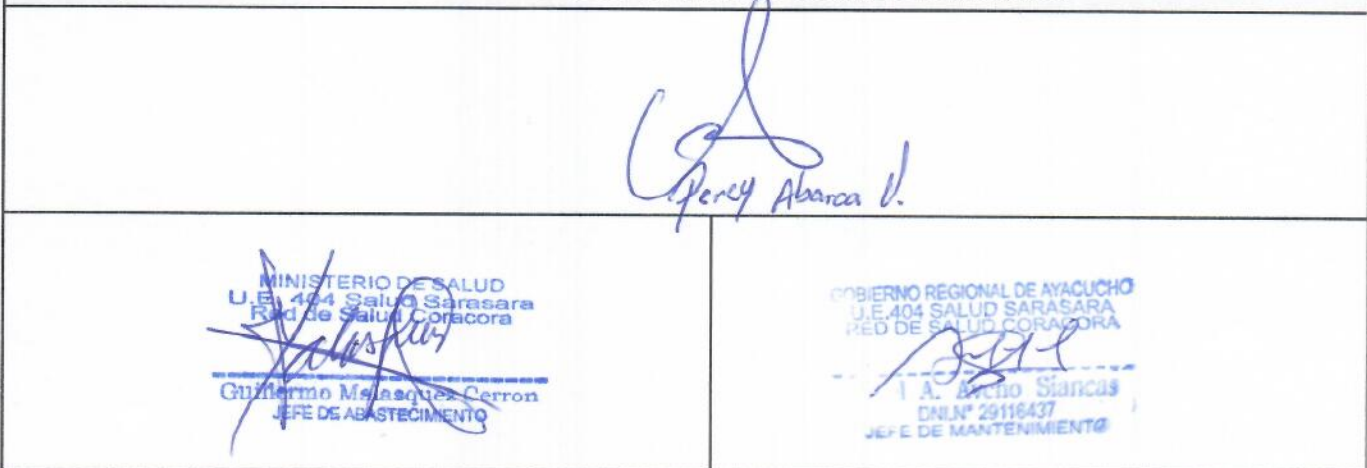 Percy Abarca V.
MINISTERIO DE SALUD
U.E. 404 Salud Sarasara
Red de Salud Coracora
Guillermo Malasquez Cerron
JEFE DE ABASTECIMIENTO
GOBIERNO REGIONAL DE AYACUCHO
U.E.404 SALUD SARASARA
RED DE SALUD CORACORA
A. Siancas
DNI.N° 29116437
JEFE DE MANTENIMIENTO